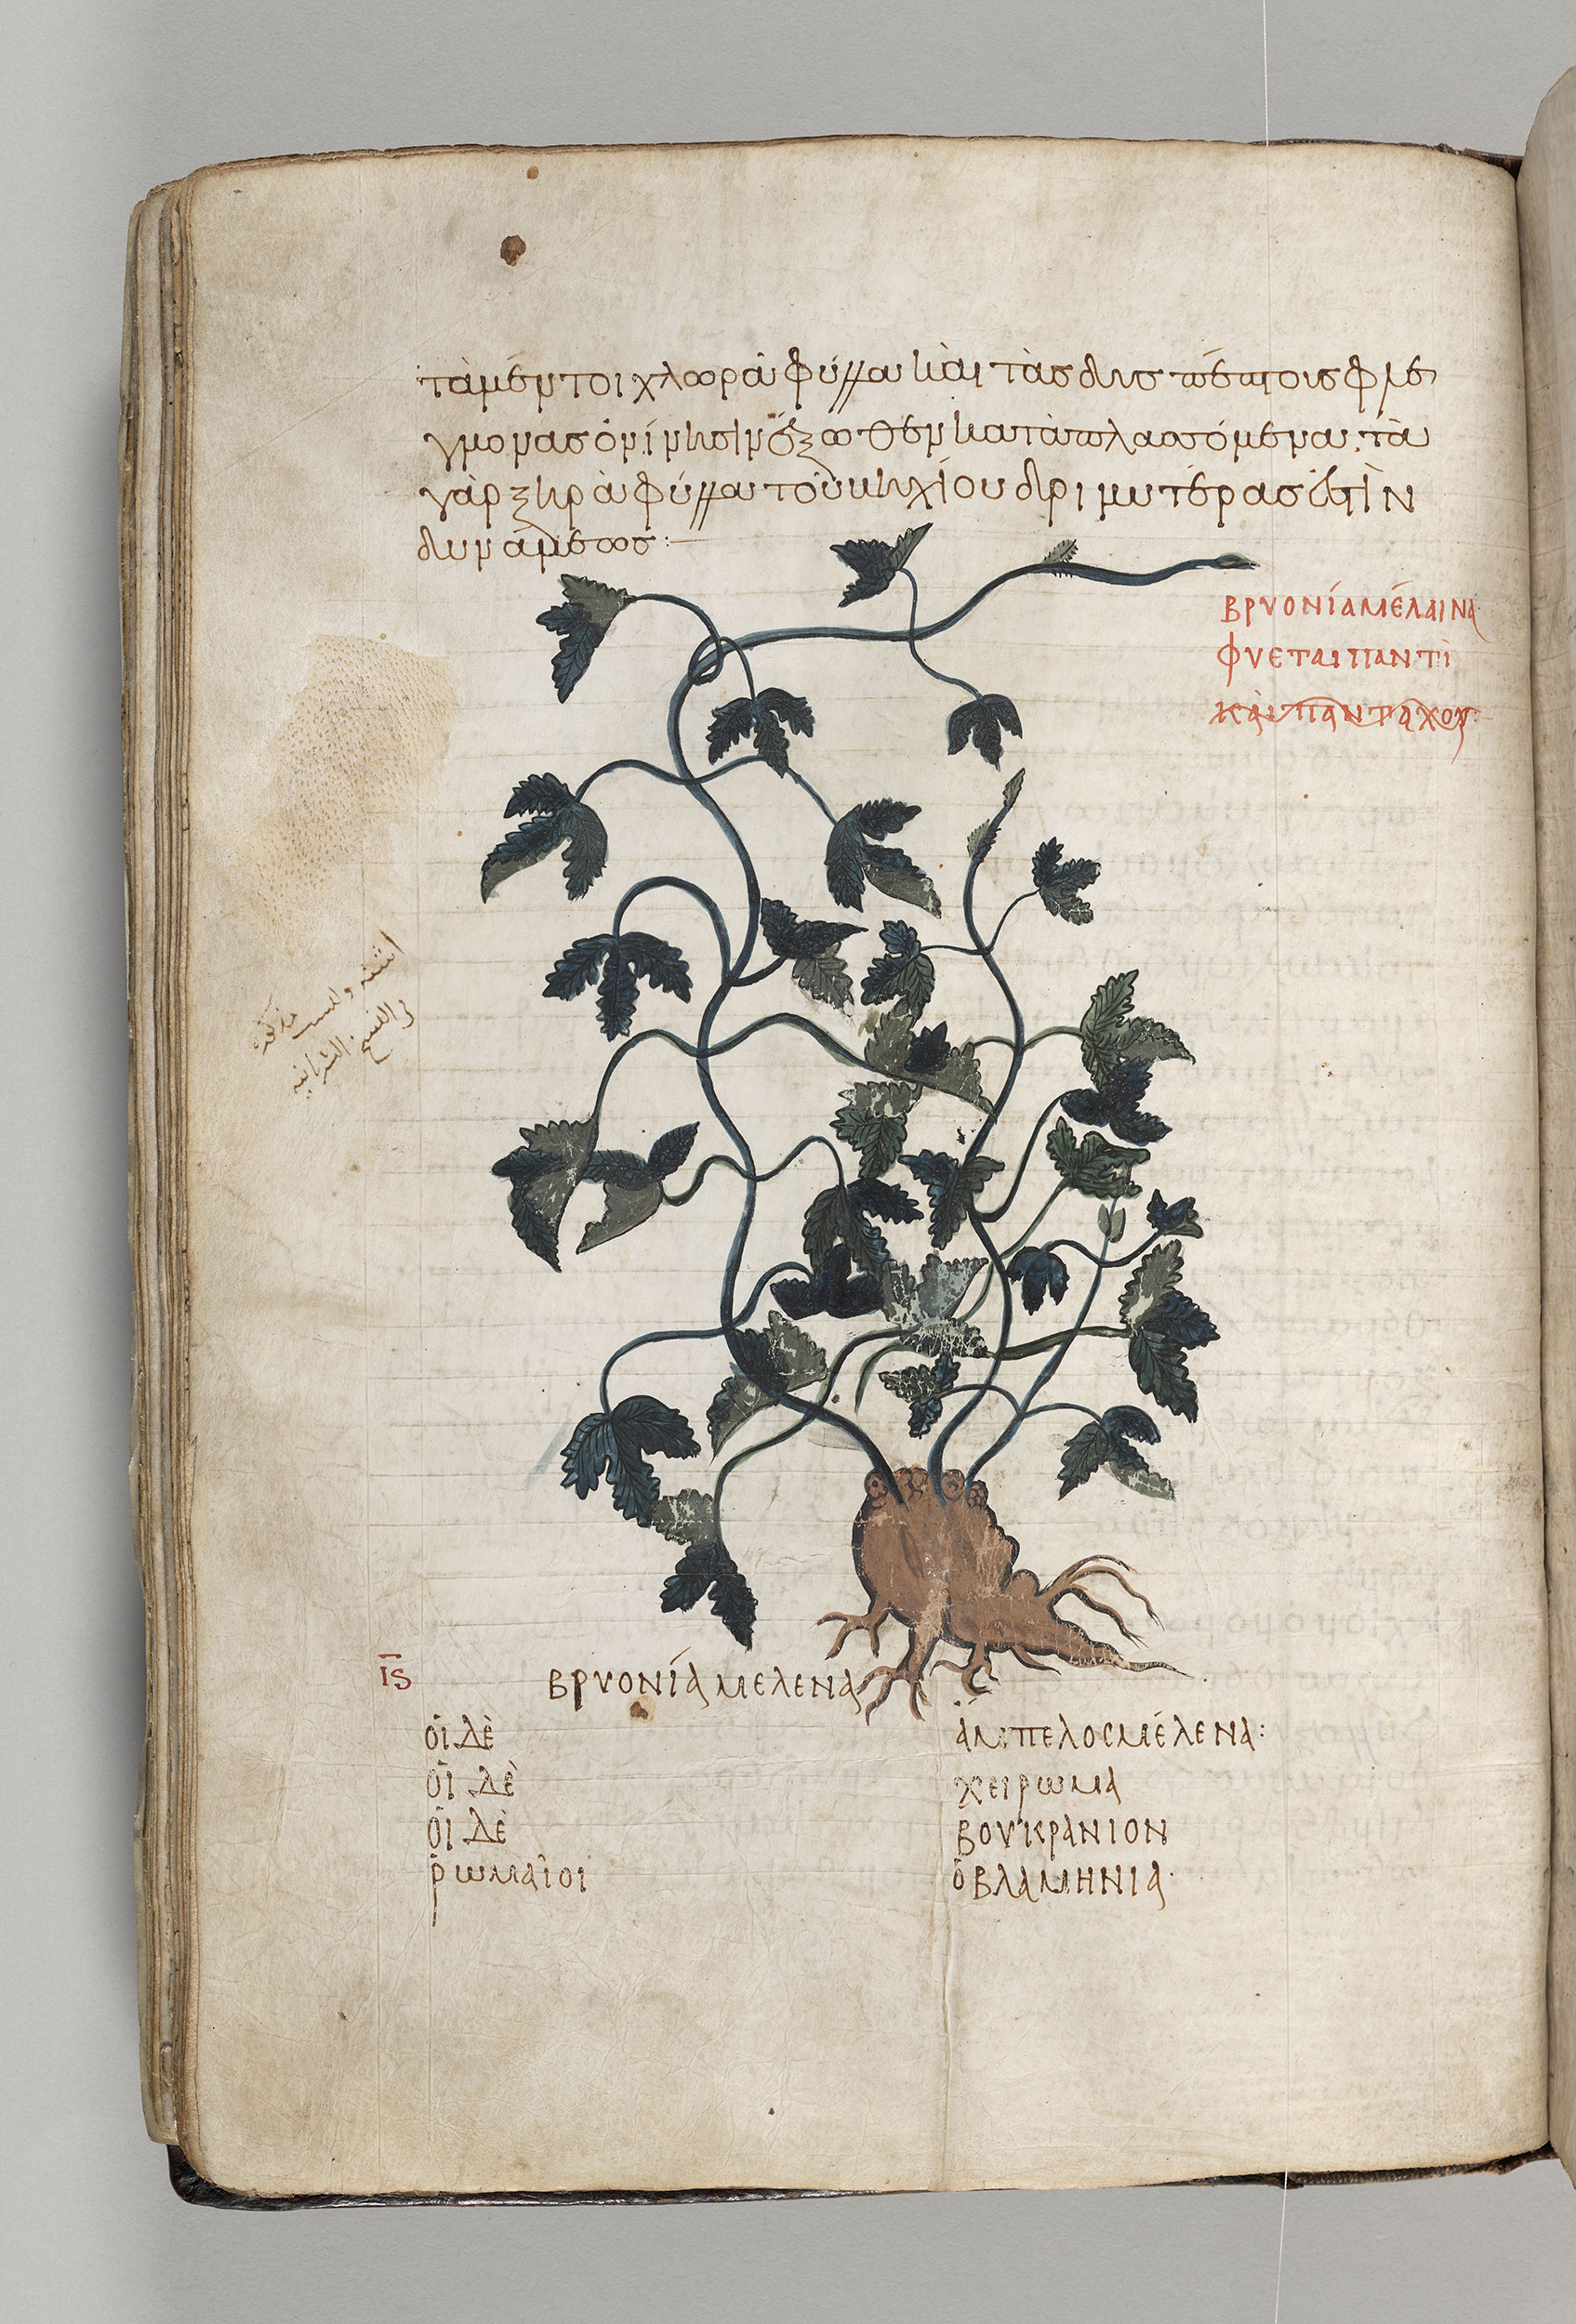 τὰ μέντοι χλωρὰ φύλλα καὶ τὰς ἐν
γμονὰς ὀνίνησιν ἔξωθεν καταπλασσόμενα· τὰ
γὰρ ξηρὰ φύλλα τοῦ δριμυτέρας ἐστὶν
δυνάμεως :—
ΒΡΥΟΝΊΑ ΜΈΛΑΙΝΑ
ΦΥΕΤΑΙ ΠΑΝΤῚ
ΚΑῚ ΠΑΝΤΑΧΟΥ:
ΙϚ ΒΡΥΟΝΊΑ ΜΕΛΕΝΑ
ΟἹ ΔῈ ἌΜΠΕΛΟΣ ΜΈΛΕΝΑ:
ΟἹ ΔῈ ΧΕΙΡΩΜΑ
ΟἹ ΔῈ ΒΟΥΚΡΑΝΙΟΝ
ῬΩΜΑῖΟΙ ὈΒΛΑΜΗΝΙΑ·